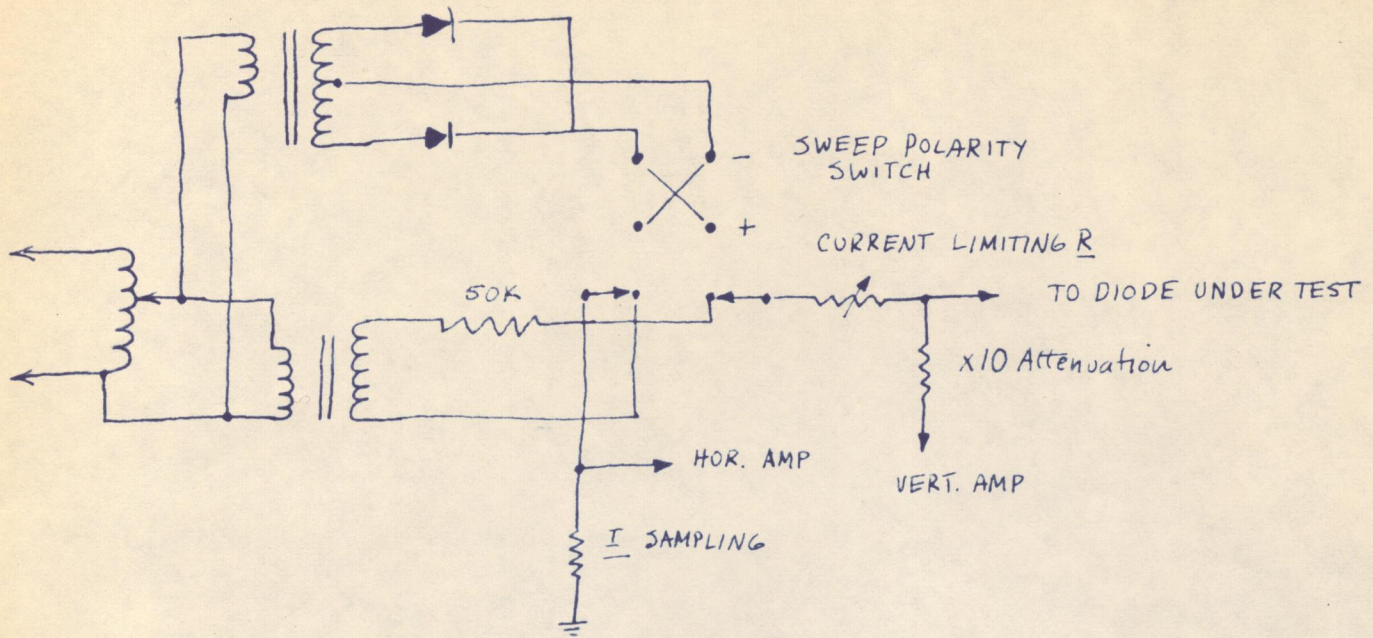 SWEEP POLARITY
SWITCH
-
+
CURRENT LIMITING R
50K
TO DIODE UNDER TEST
x10 Attenuation
HOR. AMP
VERT. AMP
I SAMPLING